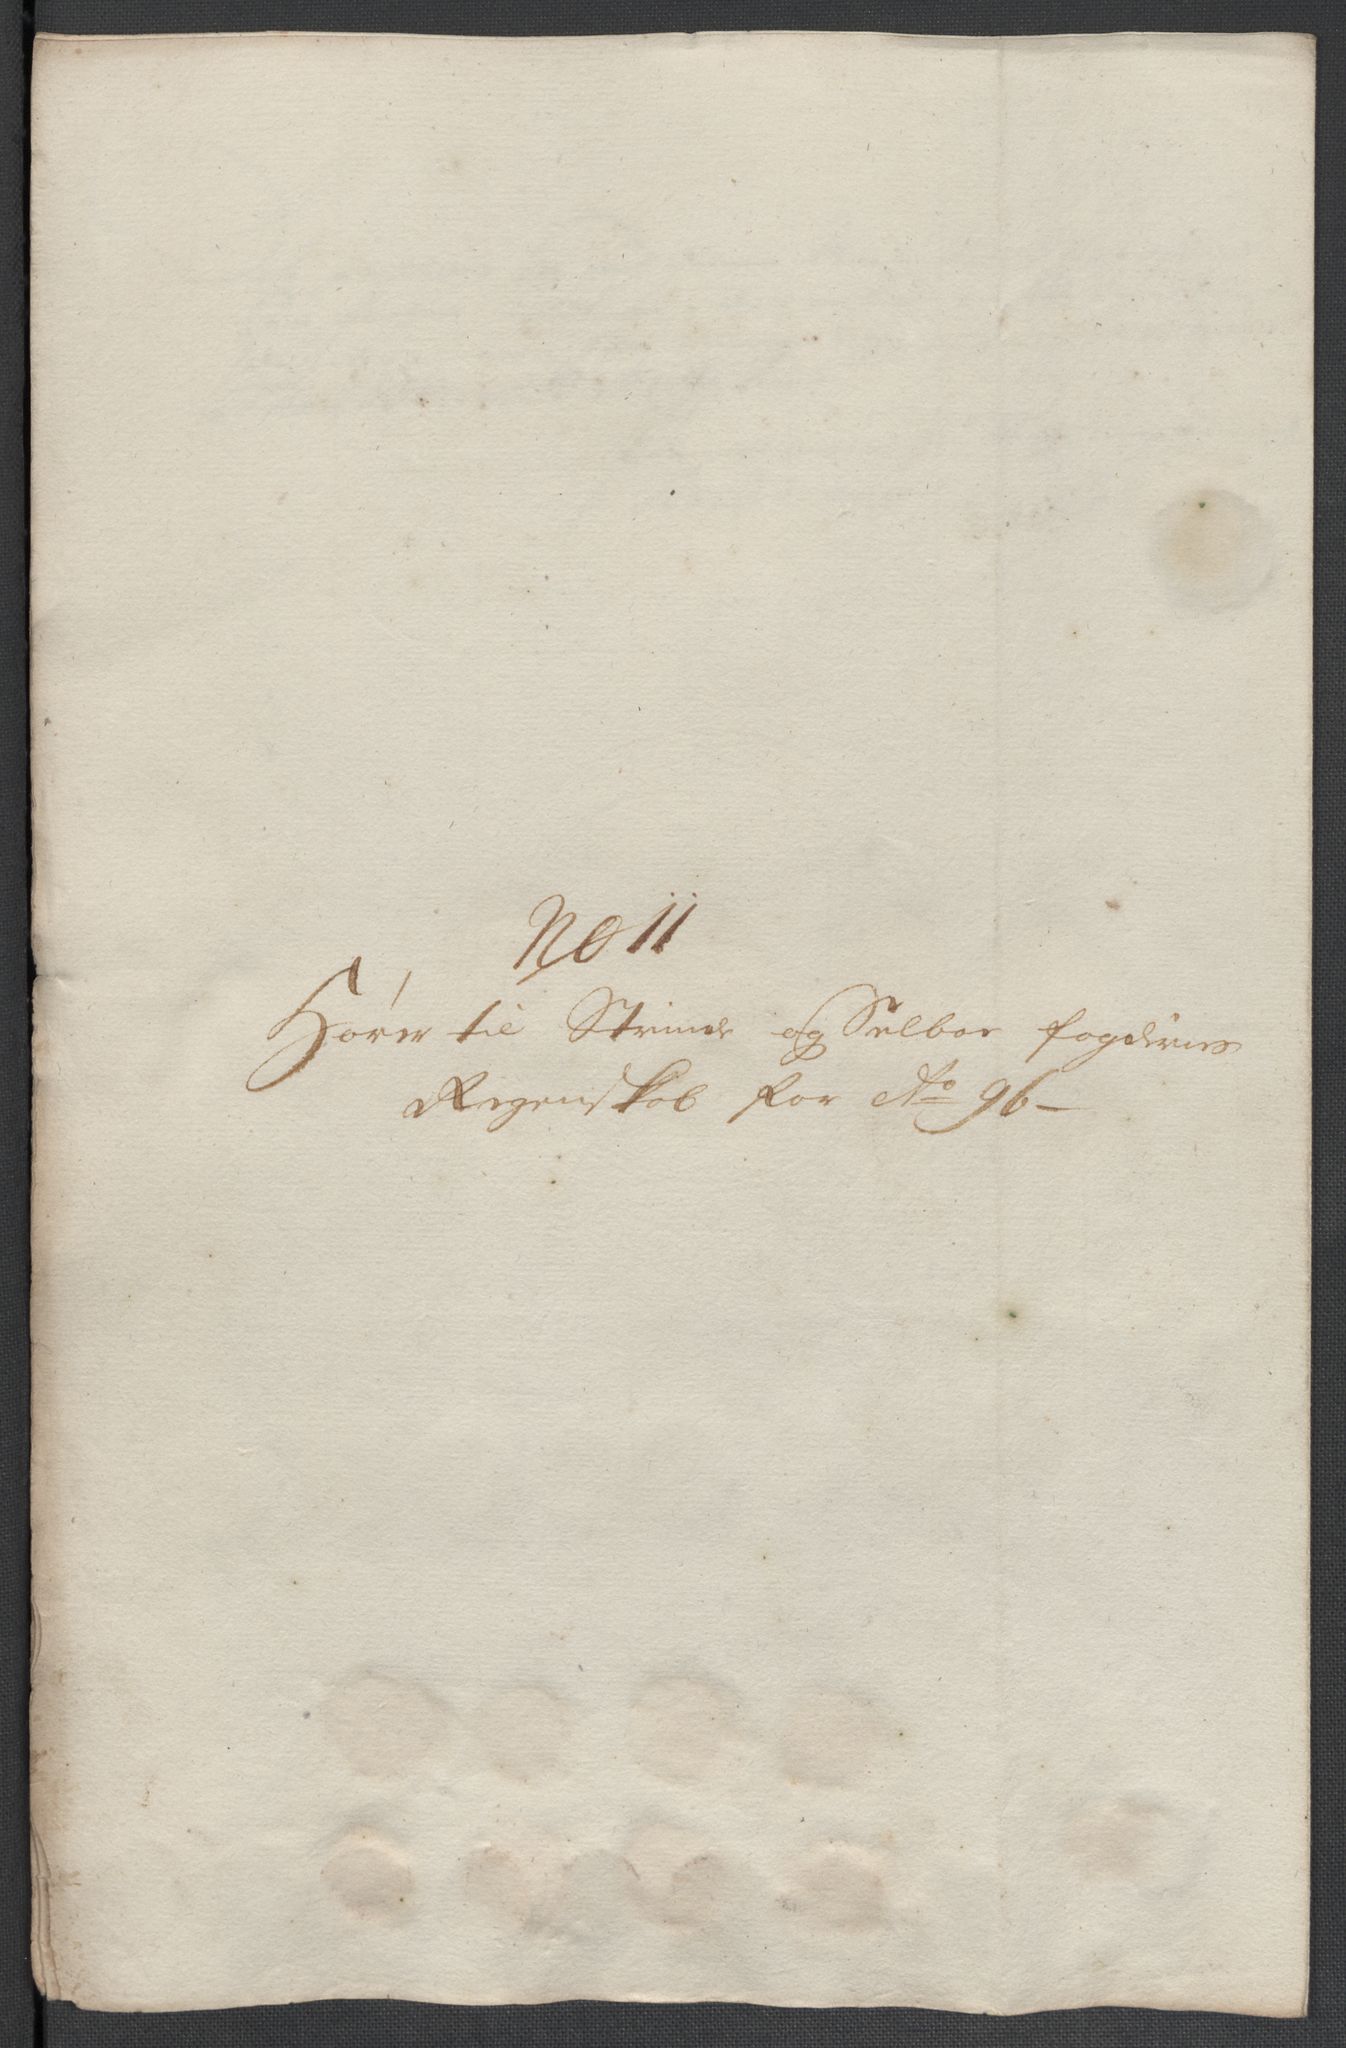 No 11
Hörer til Strinde og Selboe fogderies
Regenskob for Ao 96 –